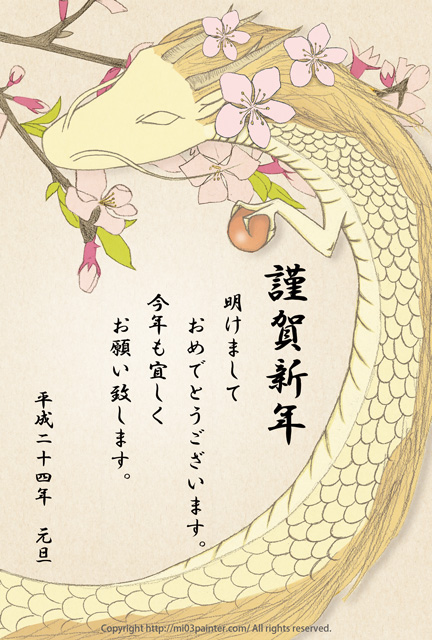 謹賀新年
明けまして
おめでとうございます。
今年も宜しく
お願い致します。
平成二十四年 元旦
Copyright http://mi03painter.com/ All rights reserved.